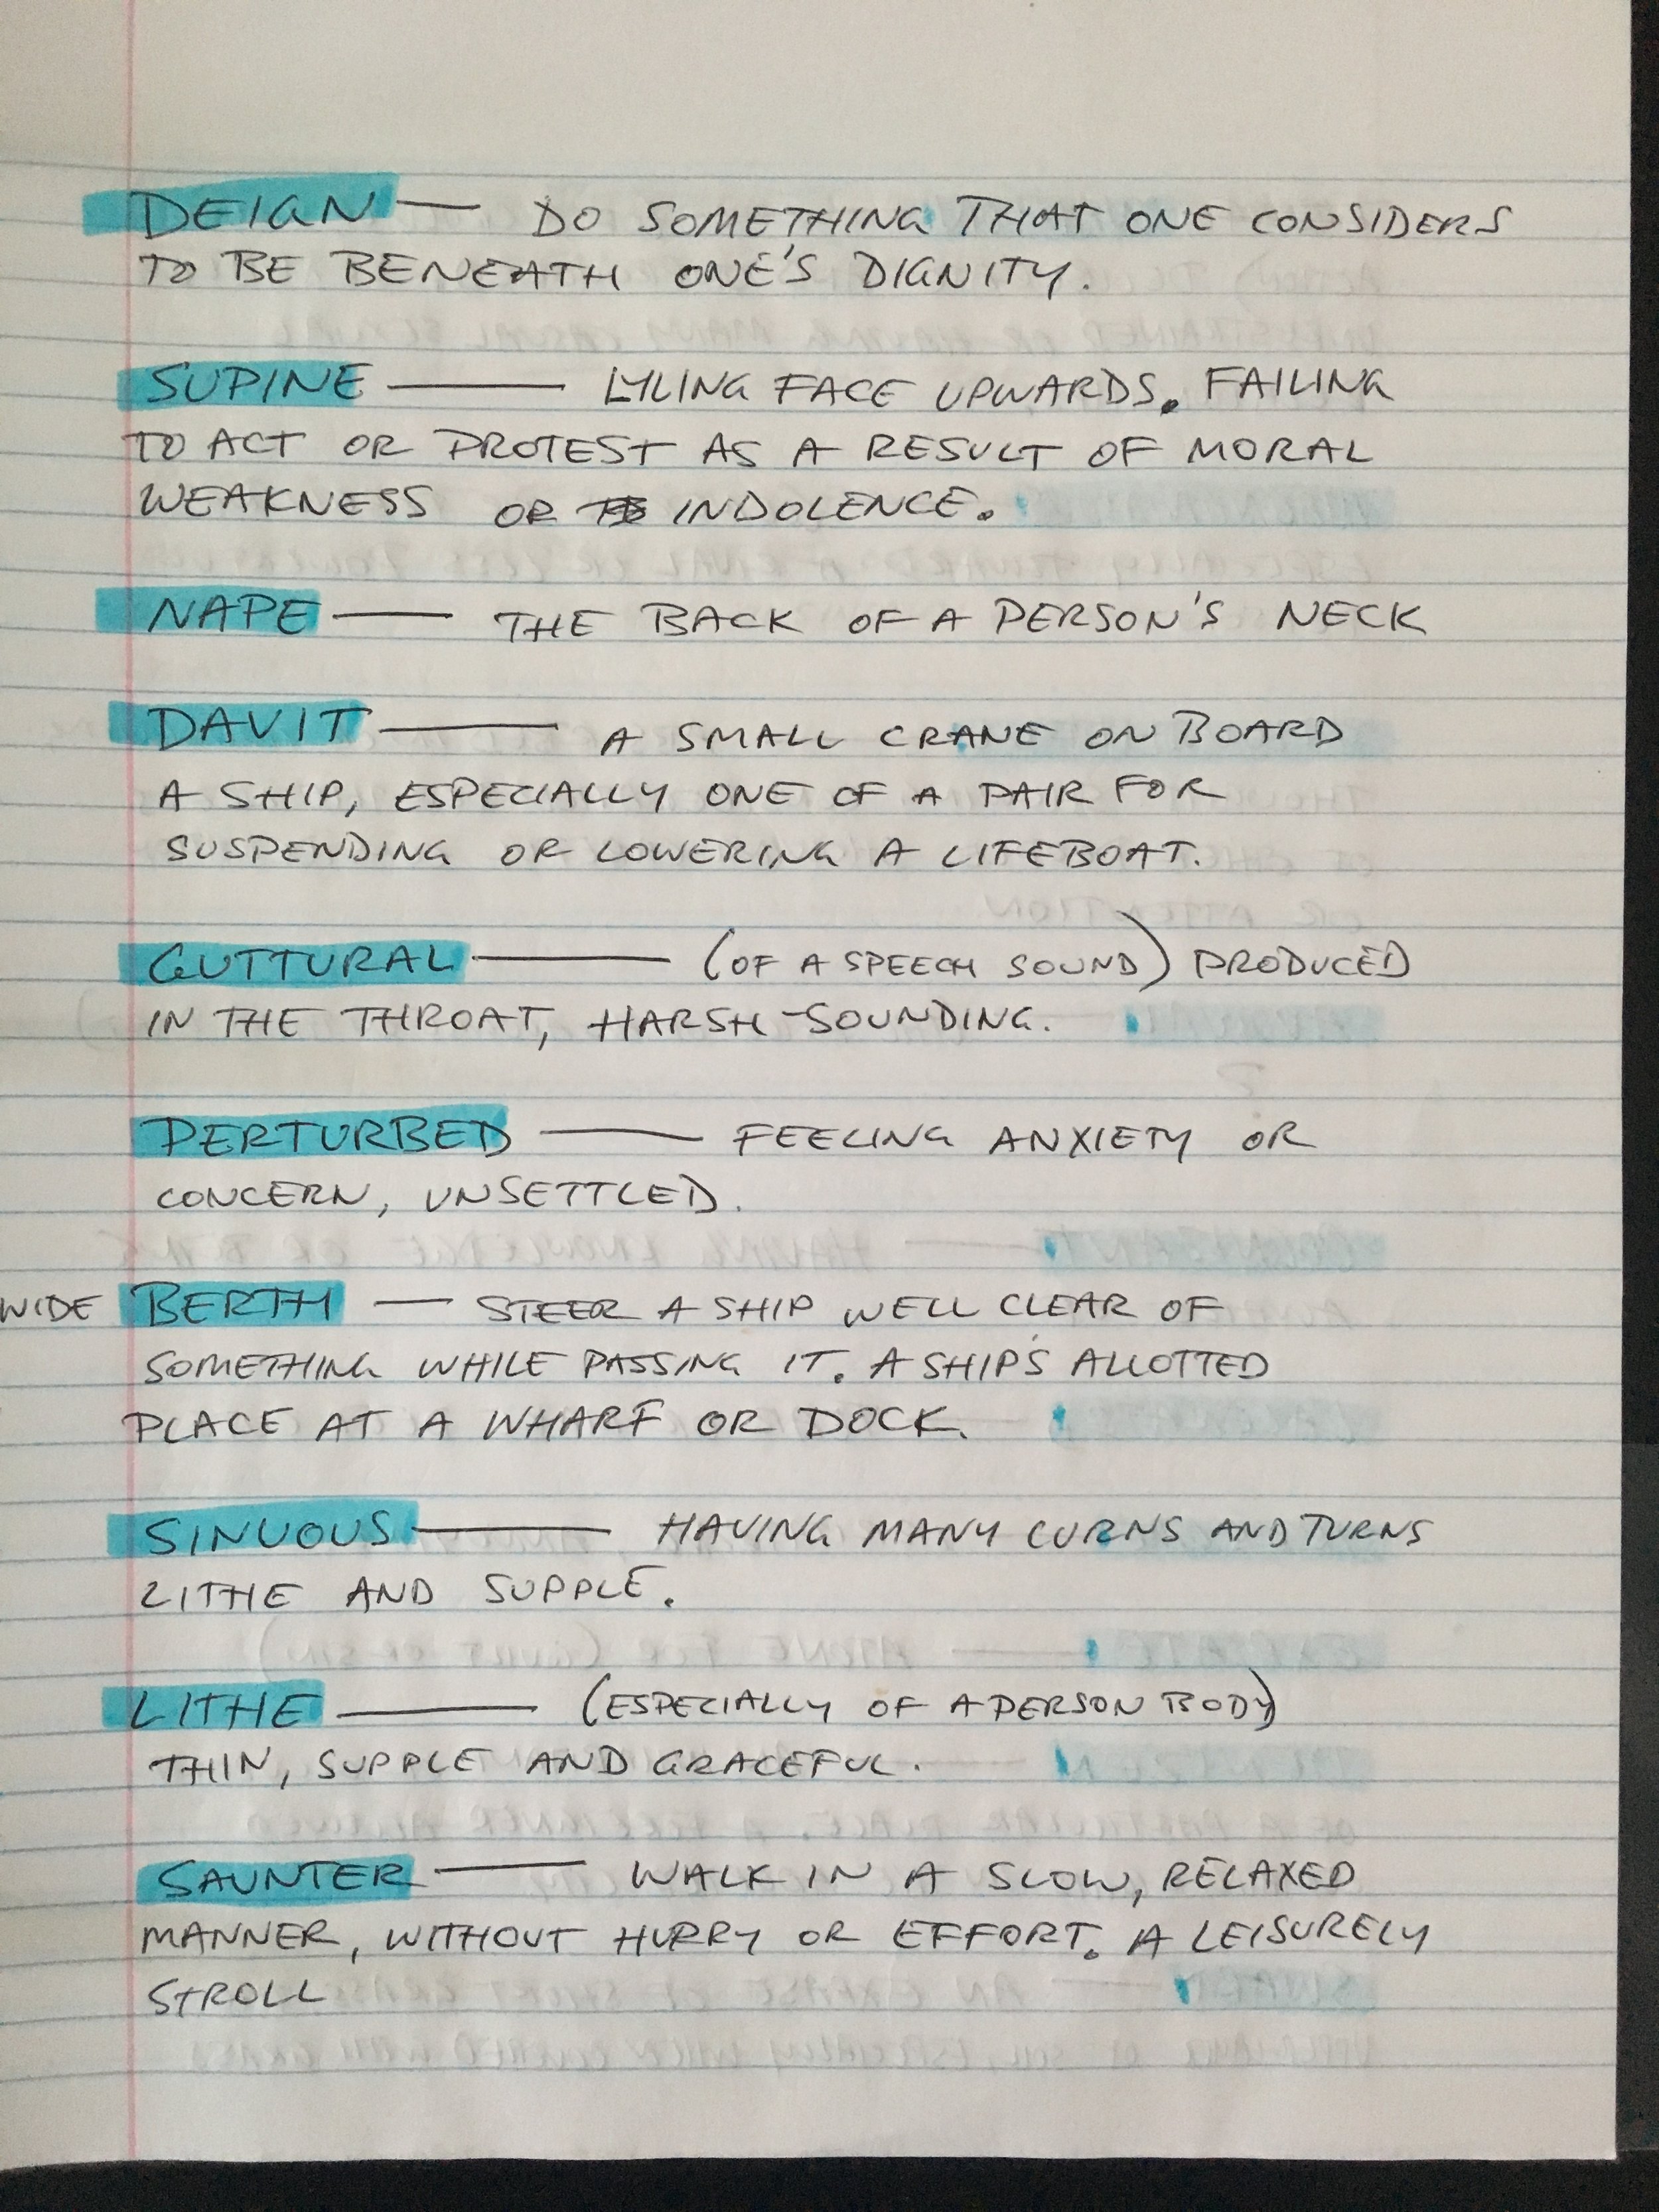 DEIGN — DO SOMETHING THAT ONE CONSIDERS
TO BE BENEATH ONE'S DIGNITY.
SUPINE — LYLING FACE UPWARDS. FAILING
TO ACT OR PROTEST AS A RESULT OF MORAL
WEAKNESS OR INDOLENCE.
NAPE — THE BACK OF A PERSON'S NECK
DAVIT — A SMALL CRANE ON BOARD
A SHIP, ESPECIALLY ONE OF A PAIR FOR
SUSPENDING OR LOWERING A LIFEBOAT.
GUTTURAL — (OF A SPEECH SOUND) PRODUCED
IN THE THROAT, HARSH-SOUNDING.
PERTURBED — FEELING ANXIETY OR
CONCERN, UNSETTLED.
WIDE BERTH — STEER A SHIP WELL CLEAR OF
SOMETHING WHILE PASSING IT. A SHIP'S ALLOTTED
PLACE AT A WHARF OR DOCK.
SINUOUS — HAVING MANY CURNS AND TURNS
LITHE AND SUPPLE.
LITHE — (ESPECIALLY OF A PERSON BODY)
THIN, SUPPLE AND GRACEFUL.
SAUNTER — WALK IN A SLOW, RELAXED
MANNER, WITHOUT HURRY OR EFFORT. A LEISURELY
STROLL